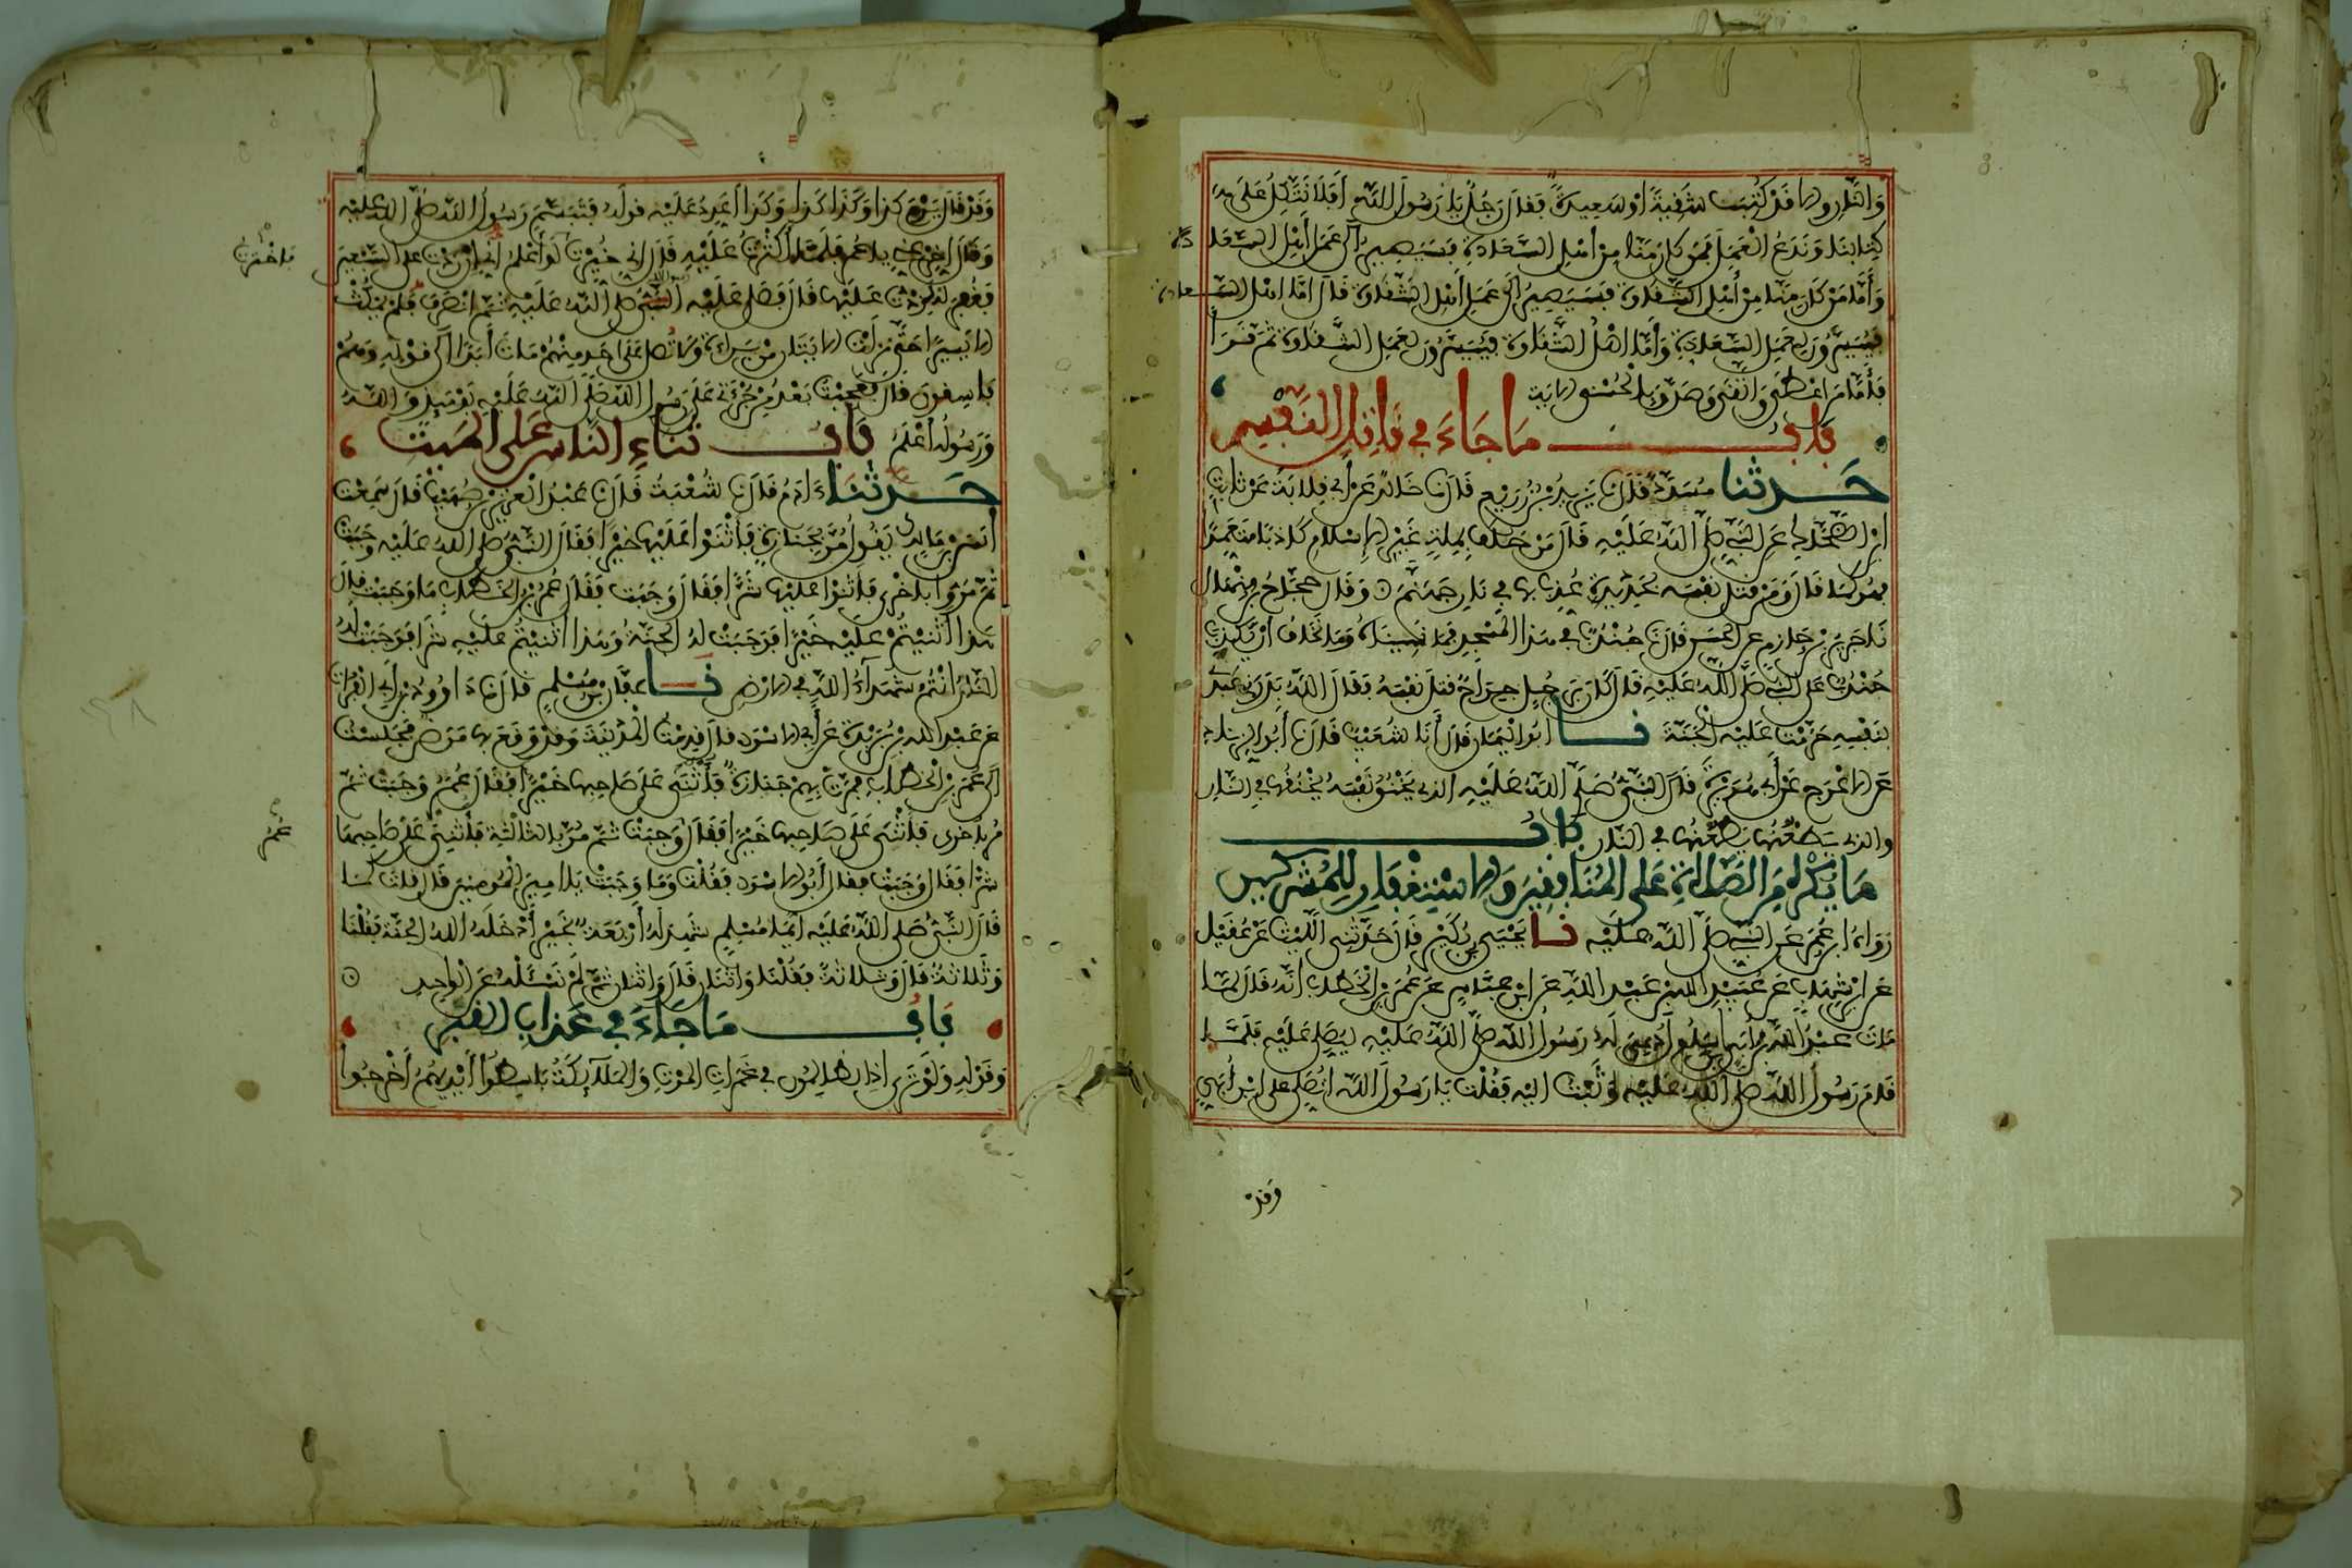 وَإِلَّا وَقَدْ كُتِبَتْ شَقِيَّةً أَوْ سَعِيدَةً فَقَالَ رَجُلٌ يَا رَسُولَ اللَّهِ أَفَلَا نَتَّكِلُ عَلَى
كِتَابِنَا وَنَدَعُ الْعَمَلَ فَمَنْ كَانَ مِنَّا مِنْ أَهْلِ السَّعَادَةِ فَسَيَصِيرُ إِلَى عَمَلِ أَهْلِ السَّعَادَة
وَأَمَّا مَنْ كَانَ مِنَّا مِنْ أَهْلِ الشَّقَاوَةِ فَسَيَصِيرُ إِلَى عَمَلِ أَهْلِ الشَّقَاوَةِ قَالَ أَمَّا أَهْلُ السَّعادة
فَيُيَسَّرُونَ لِعَمَلِ السَّعَادَةِ وَأَمَّا أَهْلُ الشَّقَاوَةِ فَيُيَسَّرُونَ لِعَمَلِ الشَّقَاوَةِ ثُمَّ قَرَأَ
فَأَمَّا مَنْ أَعْطَى وَاتَّقَى وَصَدَّقَ بِالْحُسْنَى الايَة
بَابُ مَا جَاءَ فِي قَاتِلِ النَّفْسِ
حَدَّثَنَا مُسَدَّدٌ قَالَ نَا يَزِيدُ بْنُ زُرَيْعٍ قَالَ نَا خَالِدٌ عَنْ أَبِي قِلَابَةَ عَنْ ثَابِتِ
ابْنِ الضَّحَّاكِ عَنِ النَّبِيِّ صَلَّى اللَّهُ عَلَيْهِ قَالَ مَنْ حَلَفَ بِمِلَّةٍ غَيْرِ الْإِسْلَامِ كَاذِبًا مُتَعَمِّدًا
فَهُوَ كَمَا قَالَ وَمَنْ قَتَلَ نَفْسَهُ بِحَدِيدَةٍ عُذِّبَ بِهَا فِي نَارِ جَهَنَّمَ وَقَالَ حَجَّاجُ بْنُ مِنْهَالٍ
نَا جَرِيرُ بْنُ حَازِمٍ عَنِ الْحَسَنِ قَالَ نَا جُنْدُبٌ فِي هَذَا الْمَسْجِدِ فَمَا نَسِينَاهُ وَمَا نَخَافُ أَنْ يَكْذِبَ
جُنْدُبٌ عَلَى النَّبِيِّ صَلَّى اللَّهُ عَلَيْهِ قَالَ كَانَ بِرَجُلٍ جِرَاحٌ قَتَلَ نَفْسَهُ فَقَالَ اللَّهُ بَدَرَنِي عَبْدِي
بِنَفْسِهِ حَرَّمْتُ عَلَيْهِ الْجَنَّةَ نَا أَبُو الْيَمَانِ قَالَ أَنَا شُعَيْبٌ قَالَ نَا أَبُو الزِّنَادِ
عَنِ الْأَعْرَجِ عَنْ أَبِي هُرَيْرَةَ قَالَ النَّبِيُّ صَلَّى اللَّهُ عَلَيْهِ الَّذِي يَخْنُقُ نَفْسَهُ يَخْنُقُهَا فِي النَّارِ
وَالَّذِي يَطْعُنُهَا يَطْعُنُهَا فِي النَّارِ بَابُ
مَا يُكْرَهُ مِنَ الصَّلَاةِ عَلَى الْمُنَافِقِينَ وَالاسْتِغْفَارِ لِلْمُشْرِكِينَ
رَوَاهُ ابْنُ عُمَرَ عَنِ النَّبِيِّ صَلَّى اللَّهُ عَلَيْهِ نَا يَحْيَى بْنُ بُكَيْرٍ قَالَ حَدَّثَنِي اللَّيْثُ عَنْ عُقَيْلٍ
عَنِ ابْنِ شِهَابٍ عَنْ عُبَيْدِ اللَّهِ بْنِ عَبْدِ اللَّهِ عَنِ ابْنِ عَبَّاسٍ عَنْ عُمَرَ بْنِ الْخَطَّابِ أَنَّهُ قَالَ لَمَّا
مَاتَ عَبْدُ اللَّهِ بْنُ أُبَيٍّ ابْنُ سَلُولَ دُعِيَ لَهُ رَسُولُ اللَّهِ صَلَّى اللَّهُ عَلَيْهِ لِيُصَلِّيَ عَلَيْهِ فَلَمَّا
قَامَ رَسُولُ اللَّهِ صَلَّى اللَّهُ عَلَيْهِ وَثَبْتُ إِلَيْهِ فَقُلْتُ يَا رَسُولَ اللَّهِ أَتُصَلِّي عَلَى ابْنِ أُبَيٍّ
وَقَدْ
وَقَدْ قَالَ يَوْمَ كَذَا وَكَذَا كَذَا وَكَذَا أُعَدِّدُ عَلَيْهِ قَوْلَهُ فَتَبَسَّمَ رَسُولُ اللَّهِ صَلَّى اللَّهُ عَلَيْهِ
وَقَالَ أَخِّرْ عَنِّي يَا عُمَرُ فَلَمَّا أَكْثَرْتُ عَلَيْهِ قَالَ إِنِّي خُيِّرْتُ لَوْ أَعْلَمُ أَنِّي إِنْ زِدْتُ عَلَى السَّبْعِينَ
فَاخْتَرْتُ
فَغُفِرَ لَهُ لَزِدْتُ عَلَيْهَا قَالَ فَصَلَّى عَلَيْهِ النَّبِيُّ صَلَّى اللَّهُ عَلَيْهِ ثُمَّ انْصَرَفَ فَلَمْ يَمْكُثْ
الا يَسِيرًا حَتَّى نَزَلَتِ الايَتَانِ مِنْ بَرَاءَةَ وَلَا تُصَلِّ عَلَى أَحَدٍ مِنْهُمْ مَاتَ أَبَدًا إِلَى قَوْلِهِ وَهُمْ
فَاسِقُونَ قَالَ فَعَجِبْتُ بَعْدُ مِنْ جُرْأَتِي عَلَى رَسُولِ اللَّهِ صَلَّى اللَّهُ عَلَيْهِ يَوْمَئِذٍ وَاللَّهُ
وَرَسُولُهُ أَعْلَمُ بَابُ ثَنَاءِ النَّاسِ عَلَى الْمَيِّتِ
حَدَّثَنَا ءَادَمُ قَالَ نَا شُعْبَةُ قَالَ نَا عَبْدُ الْعَزِيزِ بْنُ صُهَيْبٍ قَالَ سَمِعْتُ
أَنَسَ بْنَ مَالِكٍ يَقُولُ مُرَّ بِجَنَازَةٍ فَأَثْنَوْا عَلَيْهَا خَيْرًا فَقَالَ النَّبِيُّ صَلَّى اللَّهُ عَلَيْهِ وَجَبَتْ
ثُمَّ مَرُّوا بِأُخْرَى فَأَثْنَوْا عَلَيْهَا شَرًّا فَقَالَ وَجَبَتْ فَقَالَ عُمَرُ بْنُ الْخَطَّابِ مَا وَجَبَتْ قَالَ
هَذَا أَثْنَيْتُمْ عَلَيْهِ خَيْرًا فَوَجَبَتْ لَهُ الْجَنَّةُ وَهَذَا أَثْنَيْتُمْ عَلَيْهِ شَرًّا فَوَجَبَتْ لَهُ
النَّارُ أَنْتُمْ شُهَدَاءُ اللَّهِ فِي الارْضِ نَا عَفَّانُ بْنُ مُسْلِمٍ قَالَ نَا دَاوُودُ بْنُ أَبِي الْفُرَاتِ
عَنْ عَبْدِ اللَّهِ بْنِ بُرَيْدَةَ عَنْ أَبِي الاسْوَدِ قَالَ قَدِمْتُ الْمَدِينَةَ وَقَدْ وَقَعَ بِهَا مَرَضٌ فَجَلَسْتُ
إِلَى عُمَرَ بْنِ الْخَطَّابِ فَمَرَّتْ بِهِمْ جَنَازَةٌ فَأُثْنِيَ عَلَى صَاحِبِهَا خَيْرًا فَقَالَ عُمَرُ وَجَبَتْ ثُمَّ
مُرَّ بِأُخْرَى فَأُثْنِيَ عَلَى صَاحِبِهَا خَيْرًا فَقَالَ وَجَبَتْ ثُمَّ مُرَّ بِالثَّالِثَةِ فَأُثْنِيَ عَلَى صَاحِبِهَا
عُمَرُ
شَرًّا فَقَالَ وَجَبَتْ فَقَالَ أَبُو الاسْوَدِ فَقُلْتُ وَمَا وَجَبَتْ يَا أَمِيرَ الْمُؤْمِنِينَ قَالَ قُلْتُ كَمَا
قَالَ النَّبِيُّ صَلَّى اللَّهُ عَلَيْهِ أَيُّمَا مُسْلِمٍ شَهِدَ لَهُ أَرْبَعَةٌ بِخَيْرٍ أَدْخَلَهُ اللَّهُ الْجَنَّةَ فَقُلْنَا
وَثَلَاثَةٌ قَالَ وَثَلَاثَةٌ فَقُلْنَا وَاثْنَانِ قَالَ وَاثْنَانِ ثُمَّ لَمْ نَسْأَلْهُ عَنِ الْوَاحِدِ
بَابُ مَا جَاءَ فِي عَذَابِ الْقَبْرِ
وَقَوْلِهِ وَلَوْ تَرَى إِذِ الظَّالِمُونَ فِي غَمَرَاتِ الْمَوْتِ وَالْمَلَائِكَةُ بَاسِطُوا أَيْدِيهِمْ أَخْرِجُوا